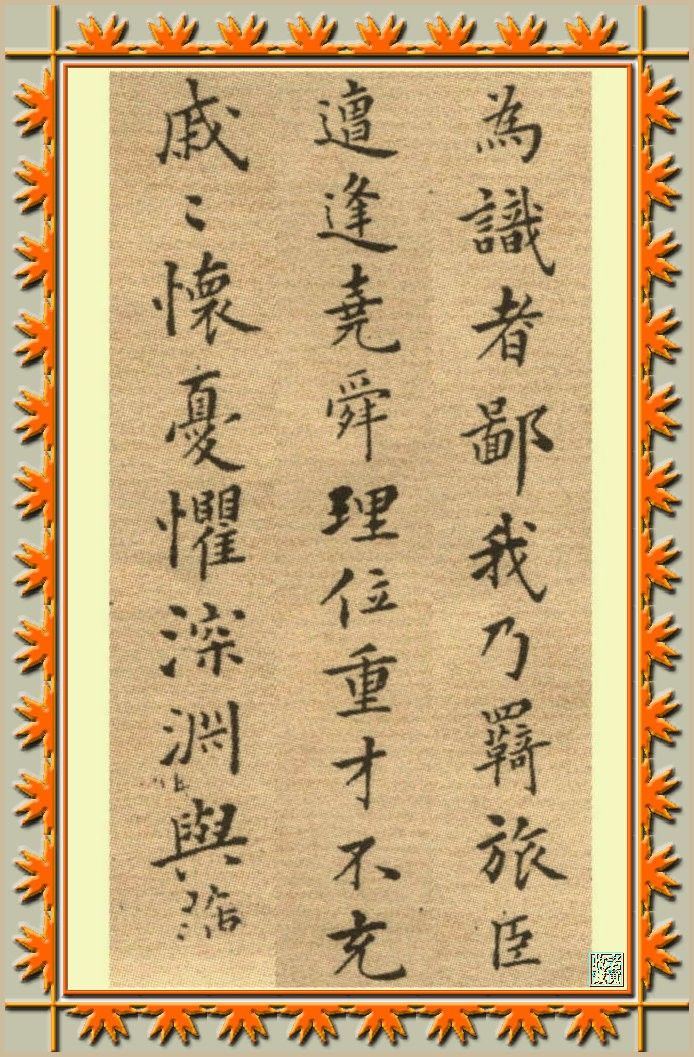 為識者鄙我乃羈旅臣
遭逢堯舜理位重才不充
戚〻懷憂懼深淵與